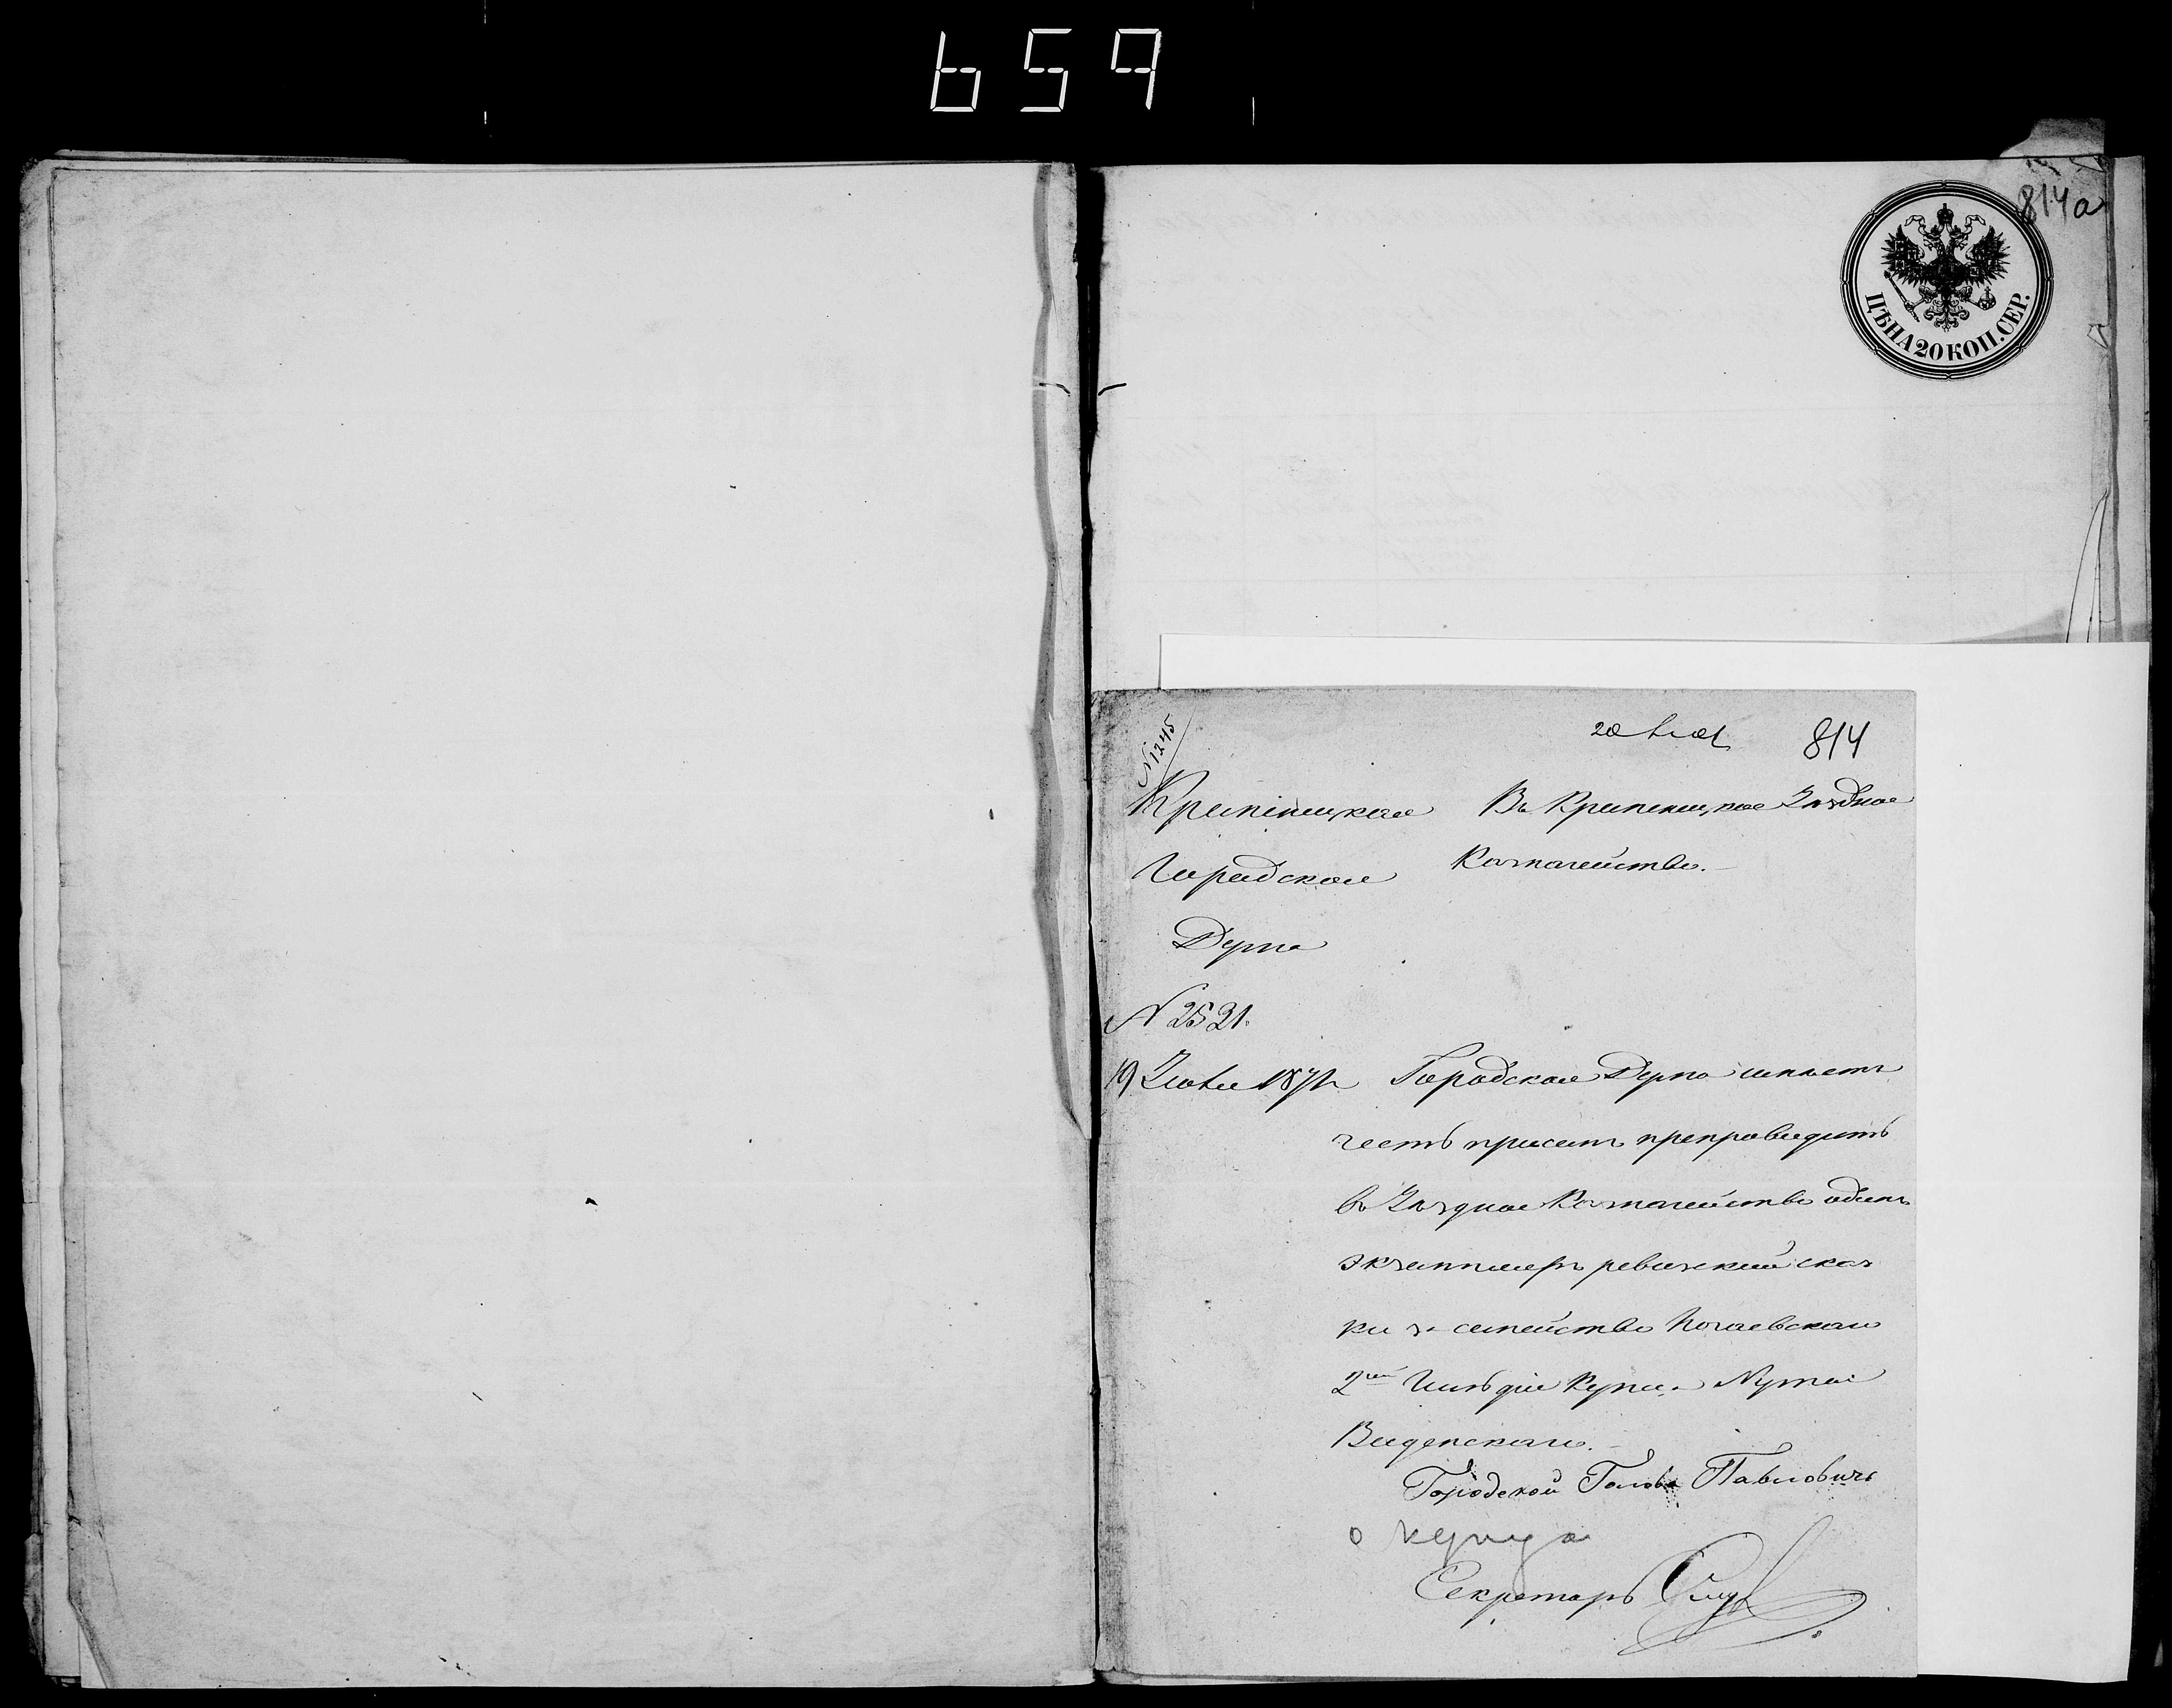 659
814а
ЦѢНА 20 КОП. СЕР.
№ 1245
814
Кременецкая
Городская
Дума
№ 2521.
19 Июля 1871
Въ Кременецкое Уѣздное
Казначейство.
Городская Дума имѣетъ
честь при семъ препроводить
въ Уѣздное Казначейство одинъ
экземпляръ ревизской сказ
ки о семействе Почаевскаго
2й Гильдіи Купца Нуты
Видепскаго.
Городской Голова Павловичъ
Секретарь